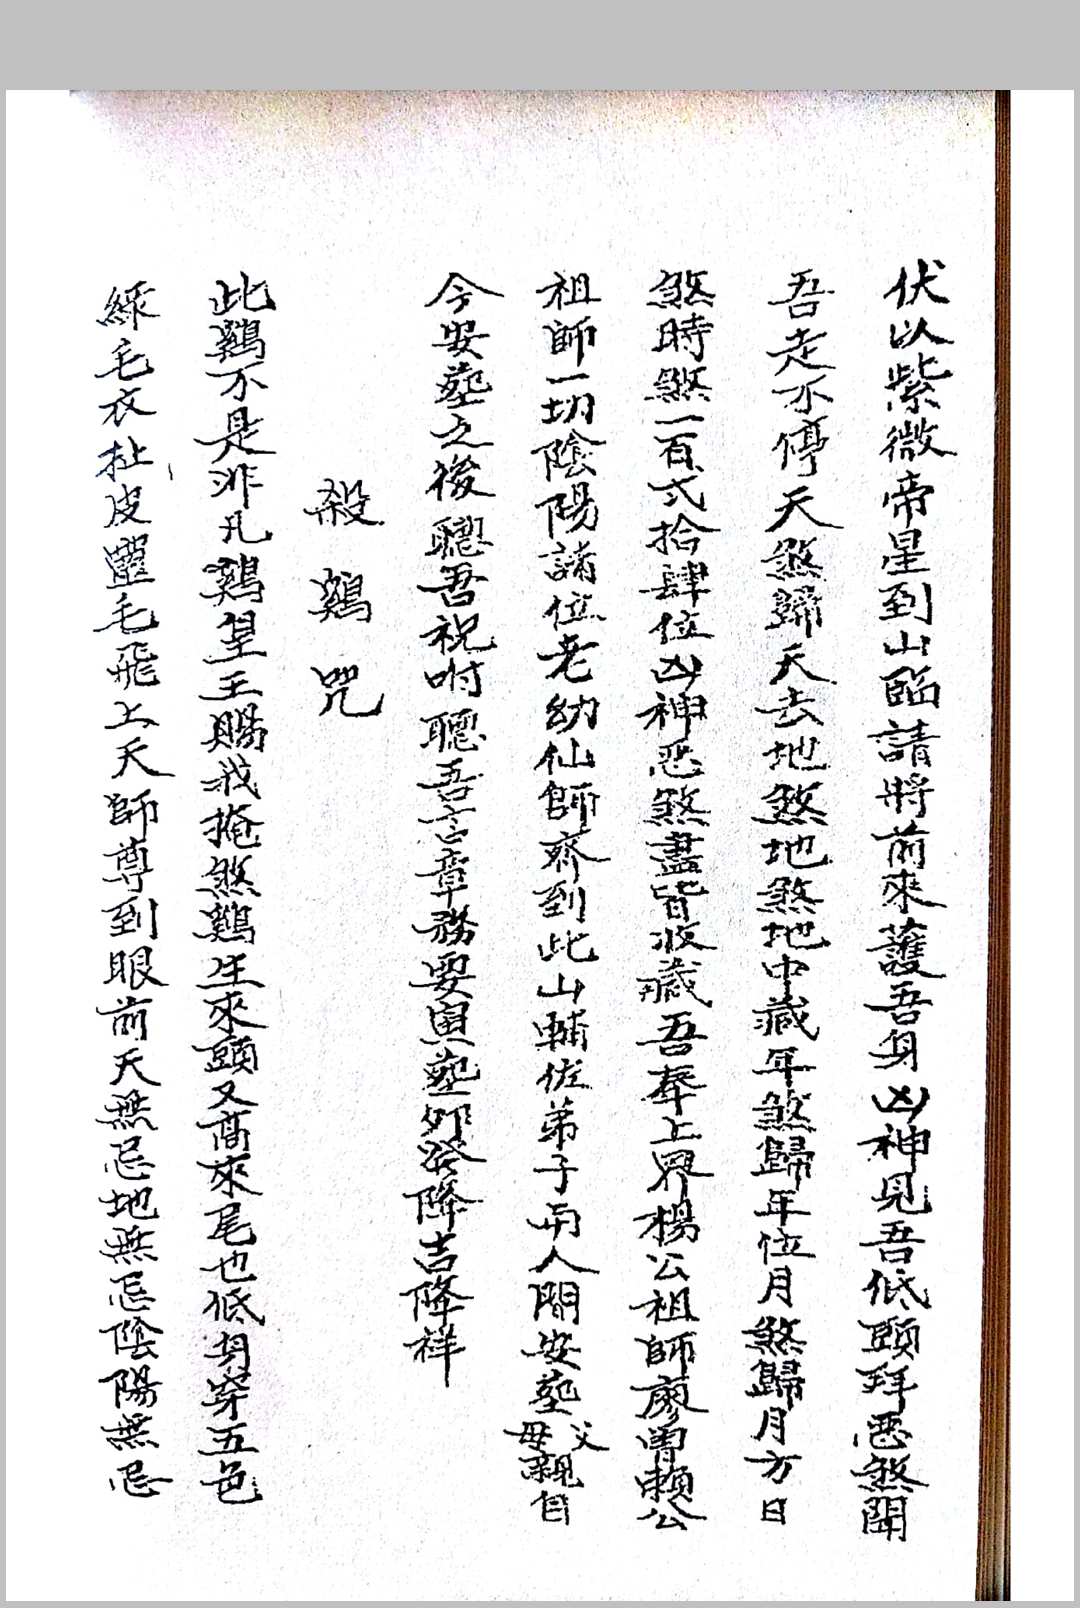 伏以紫微帝星到山臨請將前來護吾身凶神見吾低頭拜惡煞聞
吾走不停天煞歸天去地煞地煞地中藏年煞歸年位月煞歸月方日
煞時煞一百弍拾肆位凶神惡煞盡皆收藏吾奉上界楊公祖師廖曾賴公
祖師一切陰陽諸位老幼仙師齊到此山輔佐弟子両人開安墓父母親自
今安墓之後聽吾祝咐聽吾言章務要與墓卯發降吉降祥
殺鷄咒
此鷄不是非凡鷄皇王賜我掩煞鷄生來頭又高來尾也低身穿五色
綠毛衣扯皮靈毛飛上天師尊到眼前天無忌地無忌陰陽無忌